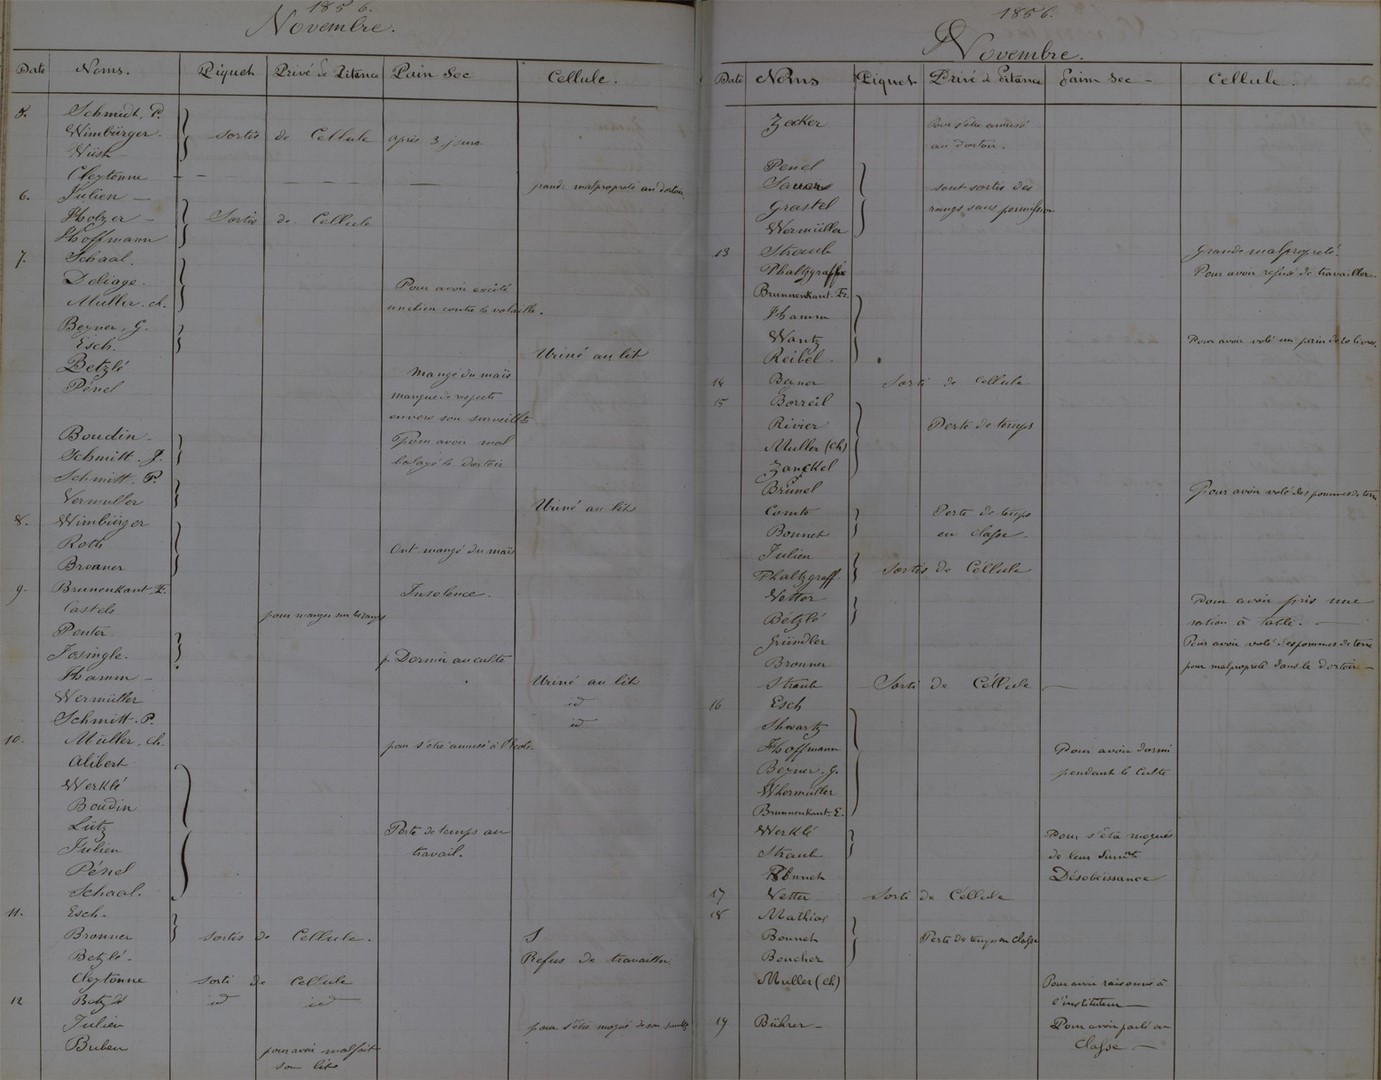 1856.
Novembre.
Date Noms. Piquet Privé de Pitance Pain Sec Cellule.
Schmidt, P.
Wimbürger. Sortis de Cellule après 3 jours
Wüst
Cleytonne grande malpropreté au dortoir
6. Julien
Holzer Sortis de Cellule
Hoffmann
7. Schaal.
Deliage. Pour avoir excité
Muller. ch. un chien contre la volaille.
Beyner, G.
Esch. Uriné au lit
Betzlé Mangé du maïs
Pénel manque de respects
envers son surveillt
Boudin. Pour avoir mal
Schmitt. J. balayé le dortoir
Schmitt. P.
Vermuller Uriné au lit
8. Wimbürger
Roth Ont mangé du maïs
Breaner
9. Brunenkant. E. Insolence.
Castelo pour manger sur les rangs
Penter
Josingle. p. Dormir au culte
Hamm Uriné au lit
Wermüller id
Schmitt. P. id
10. Müller. ch. pour s'être amusé à l'école.
Alibert
Werklé
Boudin
Lütz Perte de temps au
Julien travail.
Pénel
Schaal.
11. Esch.
Bronner Sortis de Cellule.
Betzlé. Refus de travailler
Cleytonne Sorti de Cellule
12 Betzlé id id
Julien pour s'être moqué de son
Buben pour avoir mal fait
son lit
1856.
Novembre.
Date Noms Piquet Privé de Pitance Paim Sec Cellule.
Zecker Pour s'être amusé
au dortoir.
Penel
Sauers sont sortis des
Grastel rangs sans permission
Wermüller
13 Straub Grande malpropreté.
Phaltzgraff Pour avoir refusé de travailler
Brunnenkant. E.
Hamm
Wantz Pour avoir volé un pain de livres
Reibel.
14 Bener Sorti de Cellule
15 Borreil
Rivier Perte de temps
Muller (Ch)
Zanckel
Brünel Pour avoir volé des pommes de terre
Comte Perte de temps
Bonnet en classe
Julien
Phaltzgraff Sortis de Cellule
Vetter Pour avoir pris une
Betzlé ration à table.
Gründler Pour avoir volé des pommes de terre
Bronner pour malpropreté dans le dortoir
Straub Sorti de Céllule
16 Esch
Shwartz
Hoffmann Pour avoir dormi
Beyner. G. pendant le culte
Whermuller
Brunnenkant. E.
Werklé Pour s'être moqués
Straub de leur Survt
Désobéissance
17 Vetter Sorti de Céllule
18 Mathias
Bonnet Perte de temps en classe
Boucher
Muller (Ch) Pour avoir raisonné à
l'instituteur
19 Bührer Pour avoir parlé en
Classe